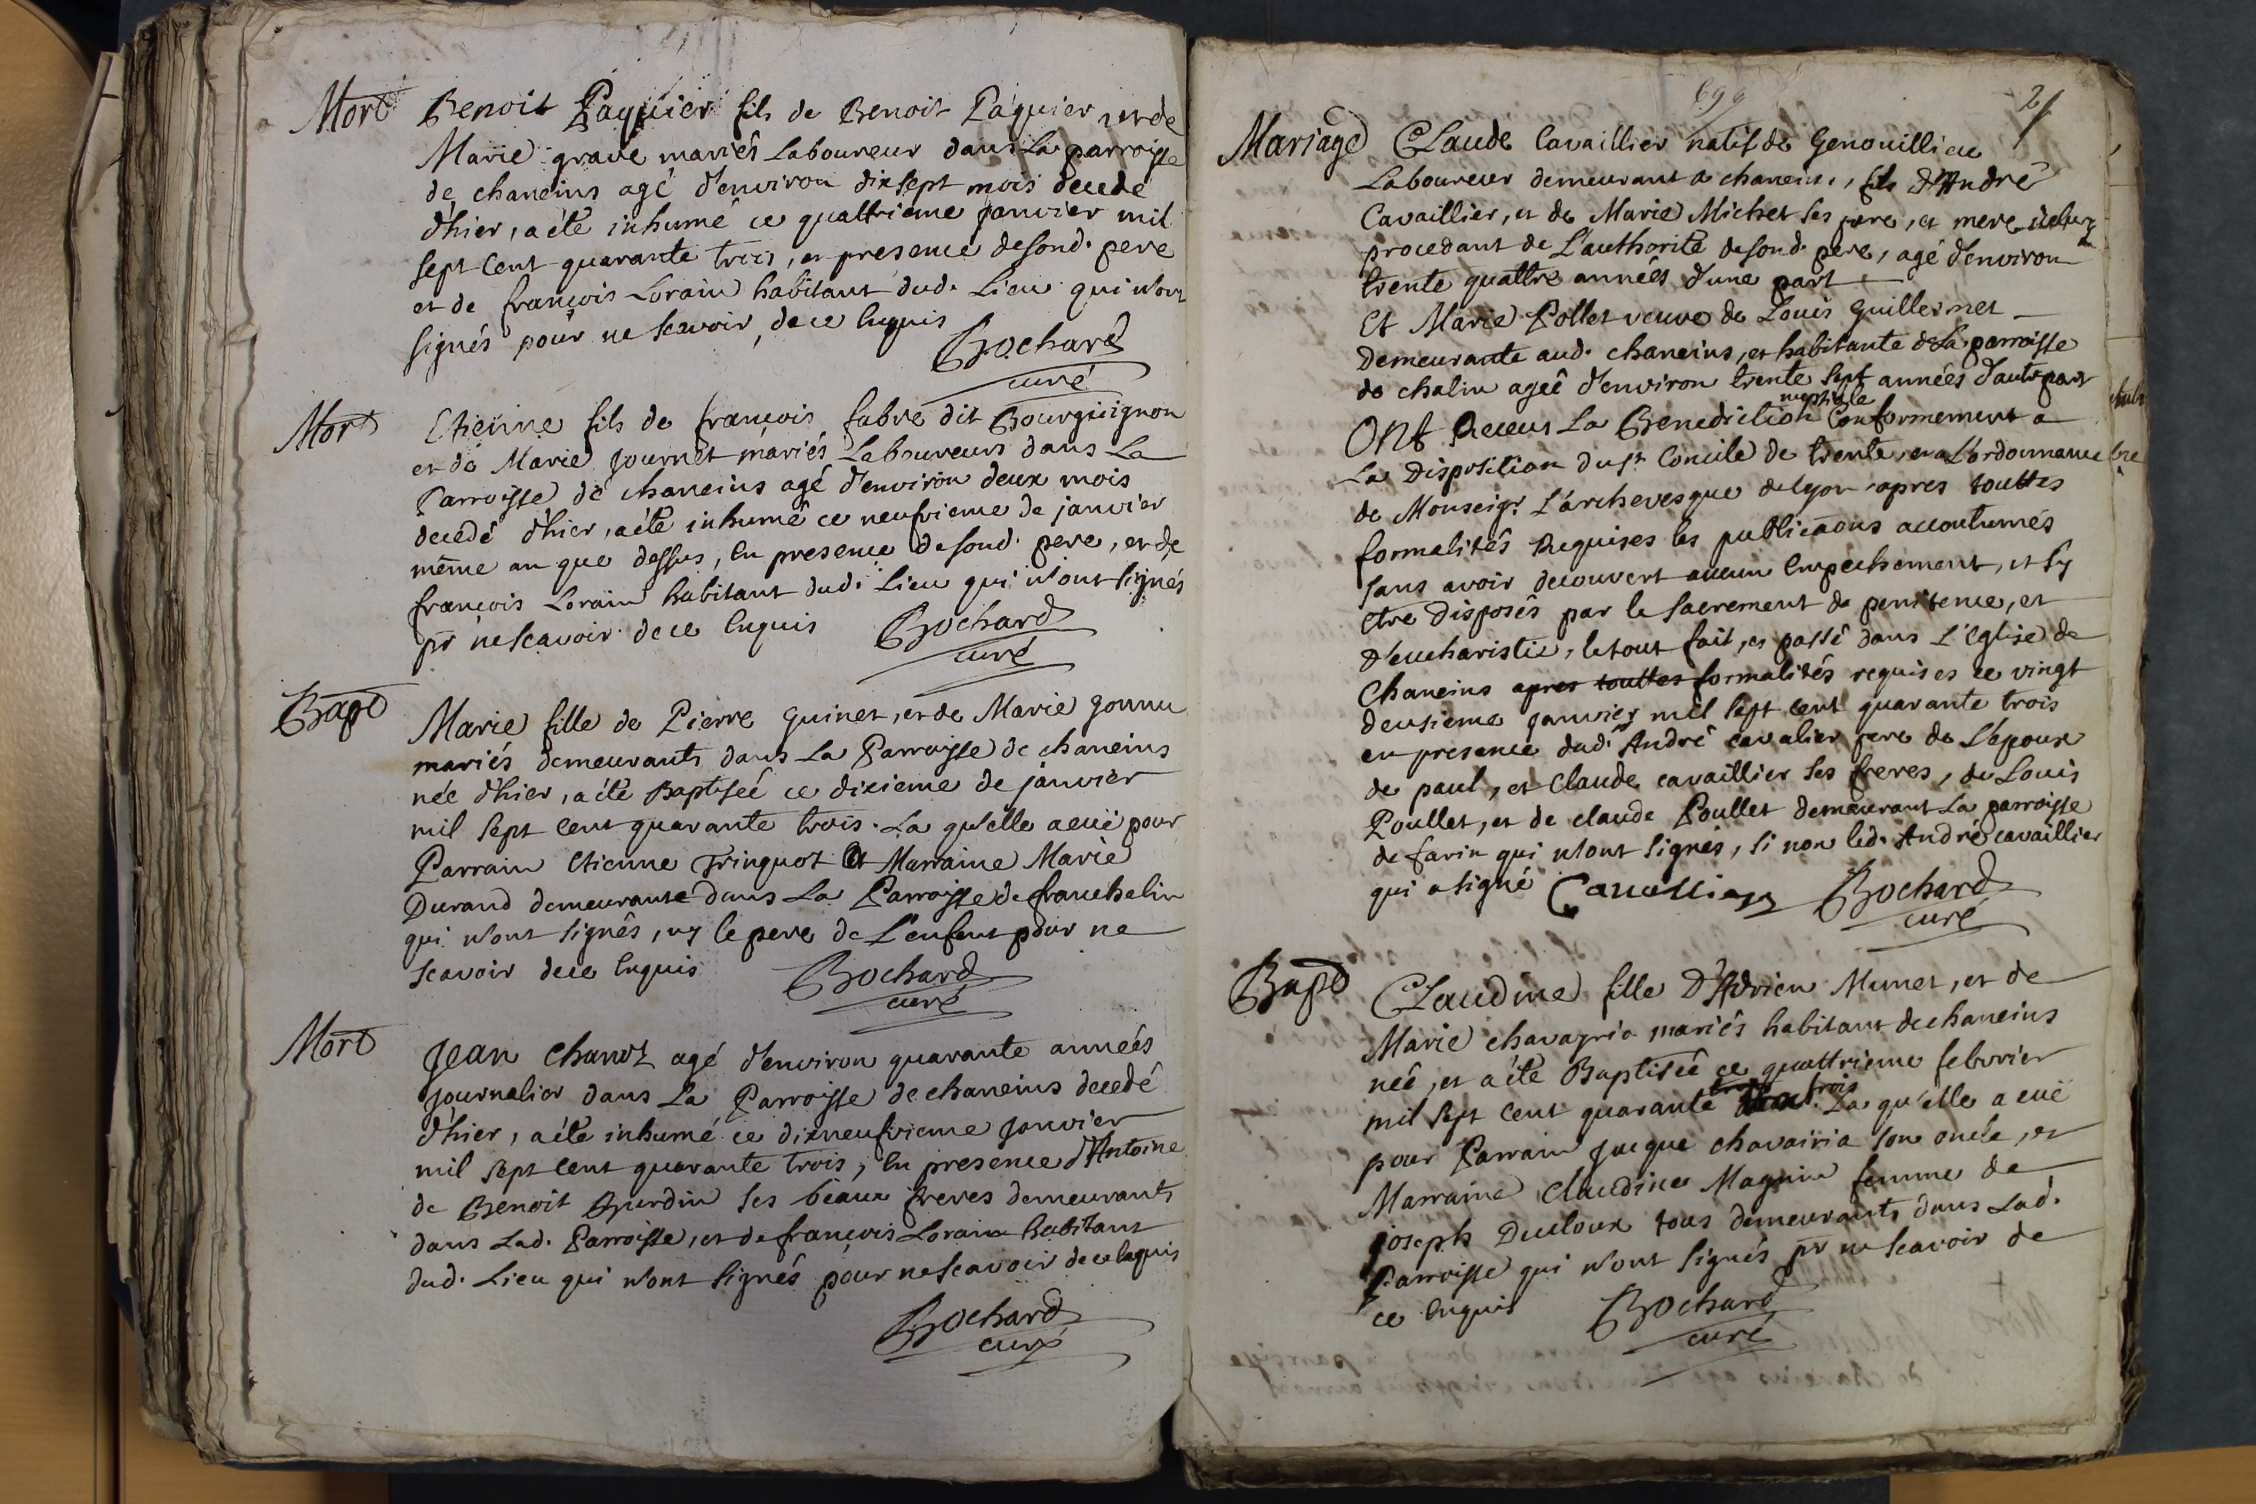 Mort Benoit Paquier fils de Benoit Paquier, et de
Marie grave mariés Laboureur dans La parroisse
de chaneins agé d'environ dixsept mois decedé
d'hier, a été inhumé ce quattrieme janvier mil
sept cent quarante trois, en presence de sond. pere
et de françois Lorain habitant dud. Lieu qui n'ont
signés pour ne scavoir, de ce Enquis
Bochard
curé
Mort Etienne fils de françois fabre dit Bourguignon
et de Marie journet mariés Laboureurs dans La
Parroisse de chaneins agé d'environ deux mois
decedé d'hier, a été inhumé ce neufvieme de janvier
même an que dessus, En presence de sond. pere, et de
françois Lorain habitant dud. Lieu qui n'ont signés
pr ne scavoir de ce Enquis Bochard
curé
Bapt Marie fille de Pierre Guinet, et de Marie gonnu
mariés demeurants dans La Parroisse de chaneins
née d'hier, a été Baptisée ce dixieme de janvier
mil sept cent quarante trois. La qu'elle a eüe pour
Parrain Etienne Trinquot Et Marraine Marie
Durand demeurante dans La Parroisse de franchelin
qui n'ont signés, ny le pere de L'enfent pour ne
scavoir de ce Enquis Bochard
curé
Mort Jean chanot agé d'environ quarante années
journalier dans La Parroisse de chaneins decedé
d'hier, a été inhumé ce dixneufvieme janvier
mil sept cent quarante trois, En presence d'Antoine
de Benoit Burdin ses beaux freres demeurants
dans Lad. Parroisse, et de françois Lorain habitant
dud. Lieu qui n'ont signés pour ne scavoir de ce Enquis
Bochard
curé
699
2
Mariage Claude Cavaillier natif de Genouillieu
Laboureur demeurant a chaneins, fils d'André
Cavaillier, et de Marie Michet ses pere, et mere
procedant de L'authorité de sond. pere, agé d'environ
trente quattre années d'une part
Et Marie Pollet veuve de Louis Guillermet
Demeurante aud. chaneins, et habitante de La parroisse
de chalin agée d'environ trente sept années d'autre part
nuptiale
Ont Receus La Benediction Conformement a
La Disposition du st Concile de trente, et a L'ordonnance
de Monseigr. L'archevesque de lyon apres touttes
formalités Requises les publicaôns accoutumés
sans avoir decouvert aucun Empechement, et sy
etre Disposés par le sacrement de penitence, et
D'eucharistie, le tout fait, et passé dans L'Eglise de
Chaneins apres touttes formalités requises ce vingt
deusieme janvier mil sept cent quarante trois
en presence dud. André cavalier pere de L'époux
de paul, et Claude cavaillier ses freres, de Louis
Poullet, et de claude Poullet demeurant La parroisse
de farin qui n'ont signés, si non led. André cavaillier
qui a signé Cavallier Bochard
curé
Bapt Claudine fille D'Adrien Munet, et de
Marie chavagria mariés habitant de chaneins
née, et a été Baptisée ce quattrieme febvrier
mil sept cent quarante trois. La qu'elle a eüe
pour Parrain jacque chavairia son oncle, et
Marraine Claudine Magnin femme de
joseph Ducloux tous demeurants dans Lad.
Parroisse qui n'ont signés pr ne scavoir de
ce Enquis Bochard
curé